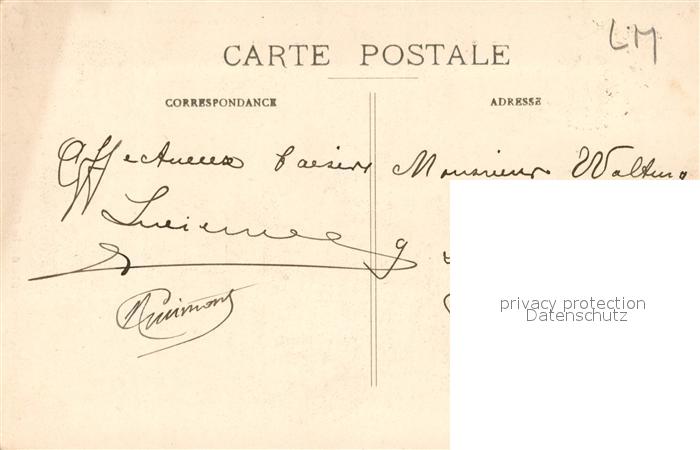 LM
CARTE POSTALE
CORRESPONDANCE
ADRESSE
Affectueux baisers
Lucienne
Monsieur
9
privacy protection
Datenschutz